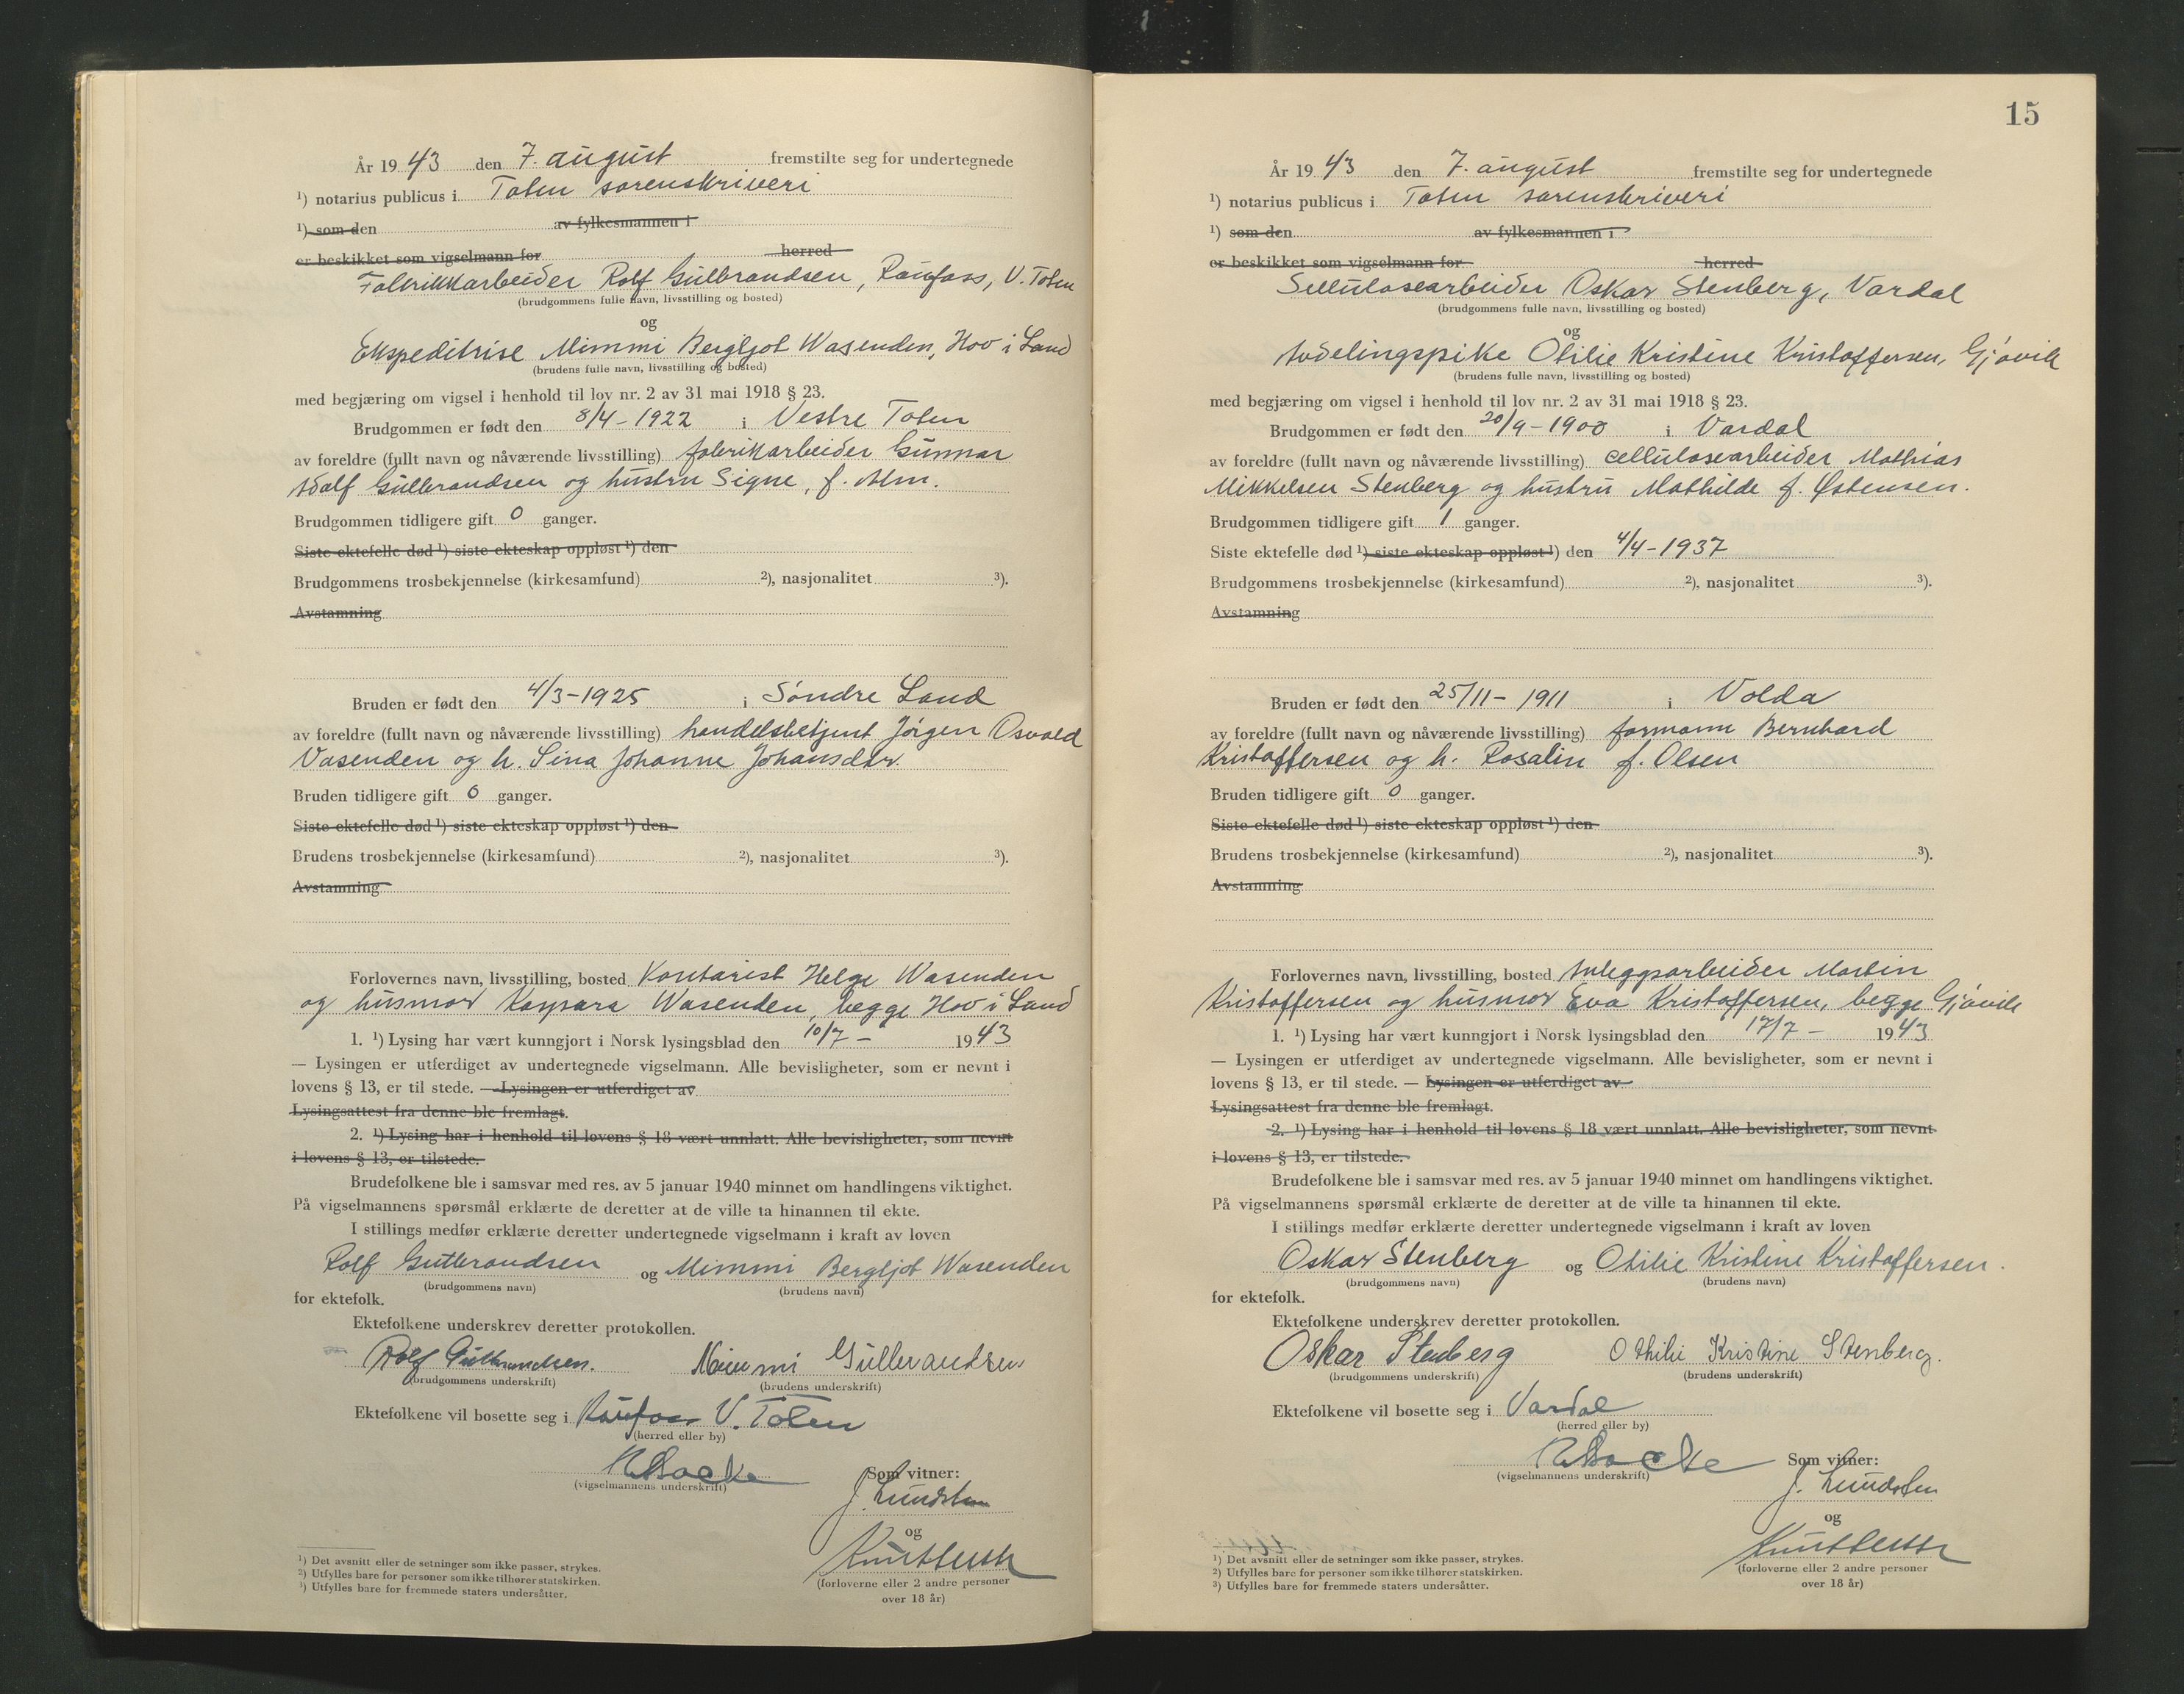 År 1943 den 7. august fremstilte seg for undertegnede
¹) notarius publicus i Toten sorenskriveri
¹) som den av fylkesmannen i
er beskikket som vigselmann for herred
Fabrikkarbeider Rolf Gulbrandsen, Raufoss, V. Toten
(brudgommens fulle navn, livsstilling og bosted)
og
Ekspeditrise Mimmi Bergljot Wasenden, Hov i Land
(brudens fulle navn, livsstilling og bosted)
med begjæring om vigsel i henhold til lov nr. 2 av 31 mai 1918 § 23.
Brudgommen er født den 8/4-1922 i Vestre Toten
av foreldre (fullt navn og nåværende livsstilling) fabrikarbeider Gunnar
Adolf Gulbrandsen og hustru Signe, f. Alm.
Brudgommen tidligere gift 0 ganger.
Siste ektefelle død ¹) siste ekteskap oppløst ¹) den
Brudgommens trosbekjennelse (kirkesamfund) ²), nasjonalitet ³).
Avstamning
Bruden er født den 4/3-1925 i Søndre Land
av foreldre (fullt navn og nåværende livsstilling) handelsbetjent Jørgen Osvald
Vasenden og h. Sina Johanne Johansdtr.
Bruden tidligere gift 0 ganger.
Siste ektefelle død ¹) siste ekteskap oppløst ¹) den
Brudens trosbekjennelse (kirkesamfund) ²), nasjonalitet ³).
Avstamning
Forlovernes navn, livsstilling, bosted Kontorist Helge Wasenden
og husmor Kaspara Wasenden, begge Hov i Land
1. ¹) Lysing har vært kunngjort i Norsk lysingsblad den 10/7 - 1943
— Lysingen er utferdiget av undertegnede vigselmann. Alle bevisligheter, som er nevnt i
lovens § 13, er til stede. — Lysingen er utferdiget av
Lysingsattest fra denne ble fremlagt.
2. ¹) Lysing har i henhold til lovens § 18 vært unnlatt. Alle bevisligheter, som nevnt
i lovens § 13, er tilstede.
Brudefolkene ble i samsvar med res. av 5 januar 1940 minnet om handlingens viktighet.
På vigselmannens spørsmål erklærte de deretter at de ville ta hinannen til ekte.
I stillings medfør erklærte deretter undertegnede vigselmann i kraft av loven
Rolf Gulbrandsen og Mimmi Bergljot Wasenden
(brudgommens navn) (brudens navn)
for ektefolk.
Ektefolkene underskrev deretter protokollen.
Rolf Gulbrandsen. Mimmi Gullbrandsen
(brudgommens underskrift) (brudens underskrift)
Ektefolkene vil bosette seg i Raufoss V. Toten
(herred eller by)
(vigselmannens underskrift) Som vitner:
J. Lundsten
og
(forloverne eller 2 andre personer
over 18 år)
¹) Det avsnitt eller de setninger som ikke passer, strykes.
²) Utfylles bare for personer som ikke tilhører statskirken.
³) Utfylles bare for fremmede staters undersåtter.
15
År 1943 den 7. august fremstilte seg for undertegnede
¹) notarius publicus i Toten sorenskriveri
¹) som den av fylkesmannen i
er beskikket som vigselmann for herred
Sellulosearbeider Oskar Stenberg, Vardal
(brudgommens fulle navn, livsstilling og bosted)
og
Avdelingspike Otilie Kristine Kristoffersen, Gjøvik
(brudens fulle navn, livsstilling og bosted)
med begjæring om vigsel i henhold til lov nr. 2 av 31 mai 1918 § 23.
Brudgommen er født den 20/9-1900 i Vardal
av foreldre (fullt navn og nåværende livsstilling) cellulosearbeider Mathias
Mikkelsen Stenberg og hustru Mathilde f. Østensen.
Brudgommen tidligere gift 1 ganger.
Siste ektefelle død ¹) siste ekteskap oppløst ¹) den 4/4-1937
Brudgommens trosbekjennelse (kirkesamfund) ²), nasjonalitet ³).
Avstamning
Bruden er født den 25/11-1911 i Volda
av foreldre (fullt navn og nåværende livsstilling) formann Bernhard
Kristoffersen og h. Rosalin f. Olsen
Bruden tidligere gift 0 ganger.
Siste ektefelle død ¹) siste ekteskap oppløst ¹) den
Brudens trosbekjennelse (kirkesamfund) ²), nasjonalitet ³).
Avstamning
Forlovernes navn, livsstilling, bosted Anleggsarbeider Martin
Kristoffersen og husmor Eva Kristoffersen, begge Gjøvik
1. ¹) Lysing har vært kunngjort i Norsk lysingsblad den 17/7 - 1943
— Lysingen er utferdiget av undertegnede vigselmann. Alle bevisligheter, som er nevnt i
lovens § 13, er til stede. — Lysingen er utferdiget av
Lysingsattest fra denne ble fremlagt.
2. ¹) Lysing har i henhold til lovens § 18 vært unnlatt. Alle bevisligheter, som nevnt
i lovens § 13, er tilstede.
Brudefolkene ble i samsvar med res. av 5 januar 1940 minnet om handlingens viktighet.
På vigselmannens spørsmål erklærte de deretter at de ville ta hinannen til ekte.
I stillings medfør erklærte deretter undertegnede vigselmann i kraft av loven
Oskar Stenberg og Otilie Kristine Kristoffersen.
(brudgommens navn) (brudens navn)
for ektefolk.
Ektefolkene underskrev deretter protokollen.
Oskar Stenberg Othilie Kristine Stenberg.
(brudgommens underskrift) (brudens underskrift)
Ektefolkene vil bosette seg i Vardal
(herred eller by)
(vigselmannens underskrift) Som vitner:
J. Lundsten
og
(forloverne eller 2 andre personer
over 18 år)
¹) Det avsnitt eller de setninger som ikke passer, strykes.
²) Utfylles bare for personer som ikke tilhører statskirken.
³) Utfylles bare for fremmede staters undersåtter.